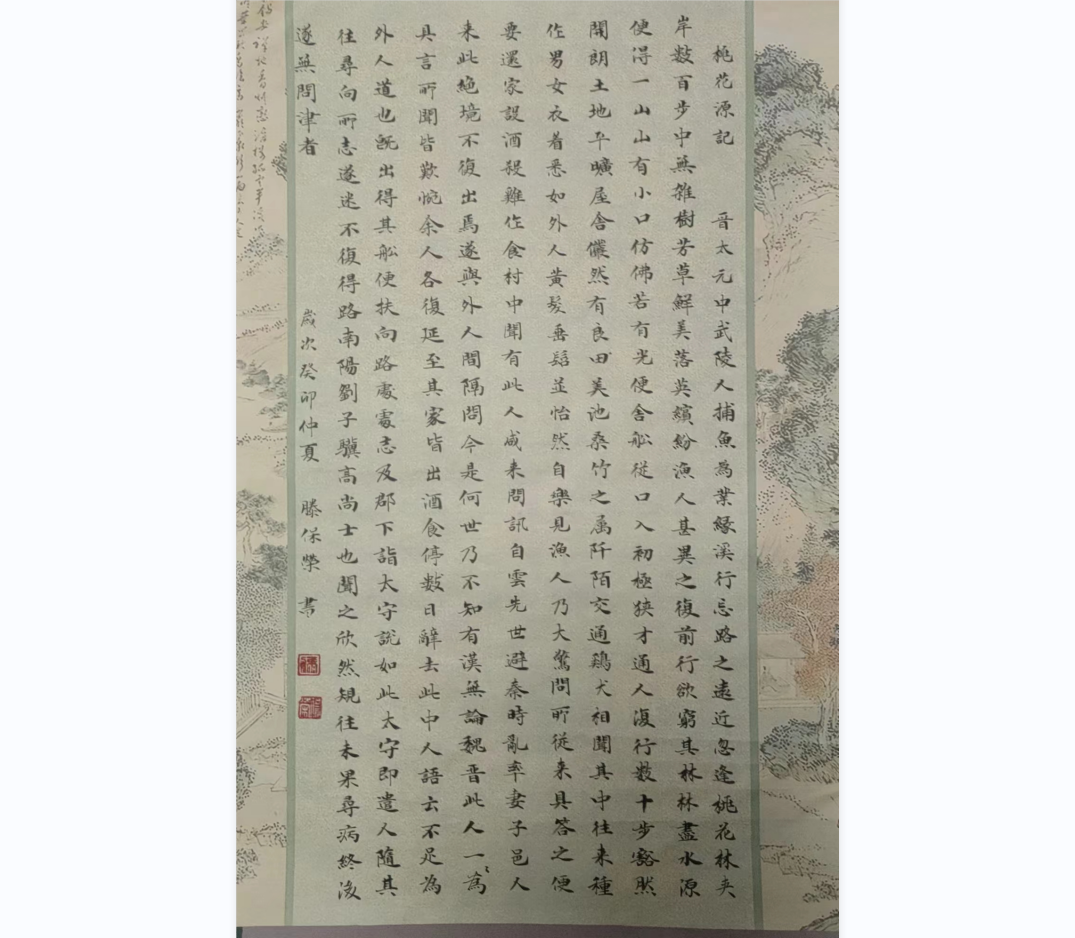 桃花源記 晉太元中武陵人捕魚為業緣溪行忘路之遠近忽逢桃花林夾
岸數百步中無雜樹芳草鮮美落英繽紛漁人甚異之復前行欲窮其林林盡水源
便得一山山有小口仿佛若有光便舍船從口入初極狹才通人復行數十步豁然
開朗土地平曠屋舍儼然有良田美池桑竹之属阡陌交通鷄犬相聞其中往来種
作男女衣着悉如外人黃髮垂髫並怡然自樂見漁人乃大驚問所從来具答之便
要還家設酒殺雞作食村中聞有此人咸来問訊自雲先世避秦時亂率妻子邑人
来此絶境不復出焉遂與外人間隔問今是何世乃不知有漢無論魏晉此人一為
具言所聞皆歎惋余人各復延至其家皆出酒食停數日辭去此中人語云不足為
外人道也既出得其船便扶向路處處志及郡下詣太守說如此太守即遣人隨其
往尋向所志遂迷不復得路南陽劉子驥高尚士也聞之欣然規往未果尋病終後
遂無問津者 歲次癸卯仲夏 滕保榮 書